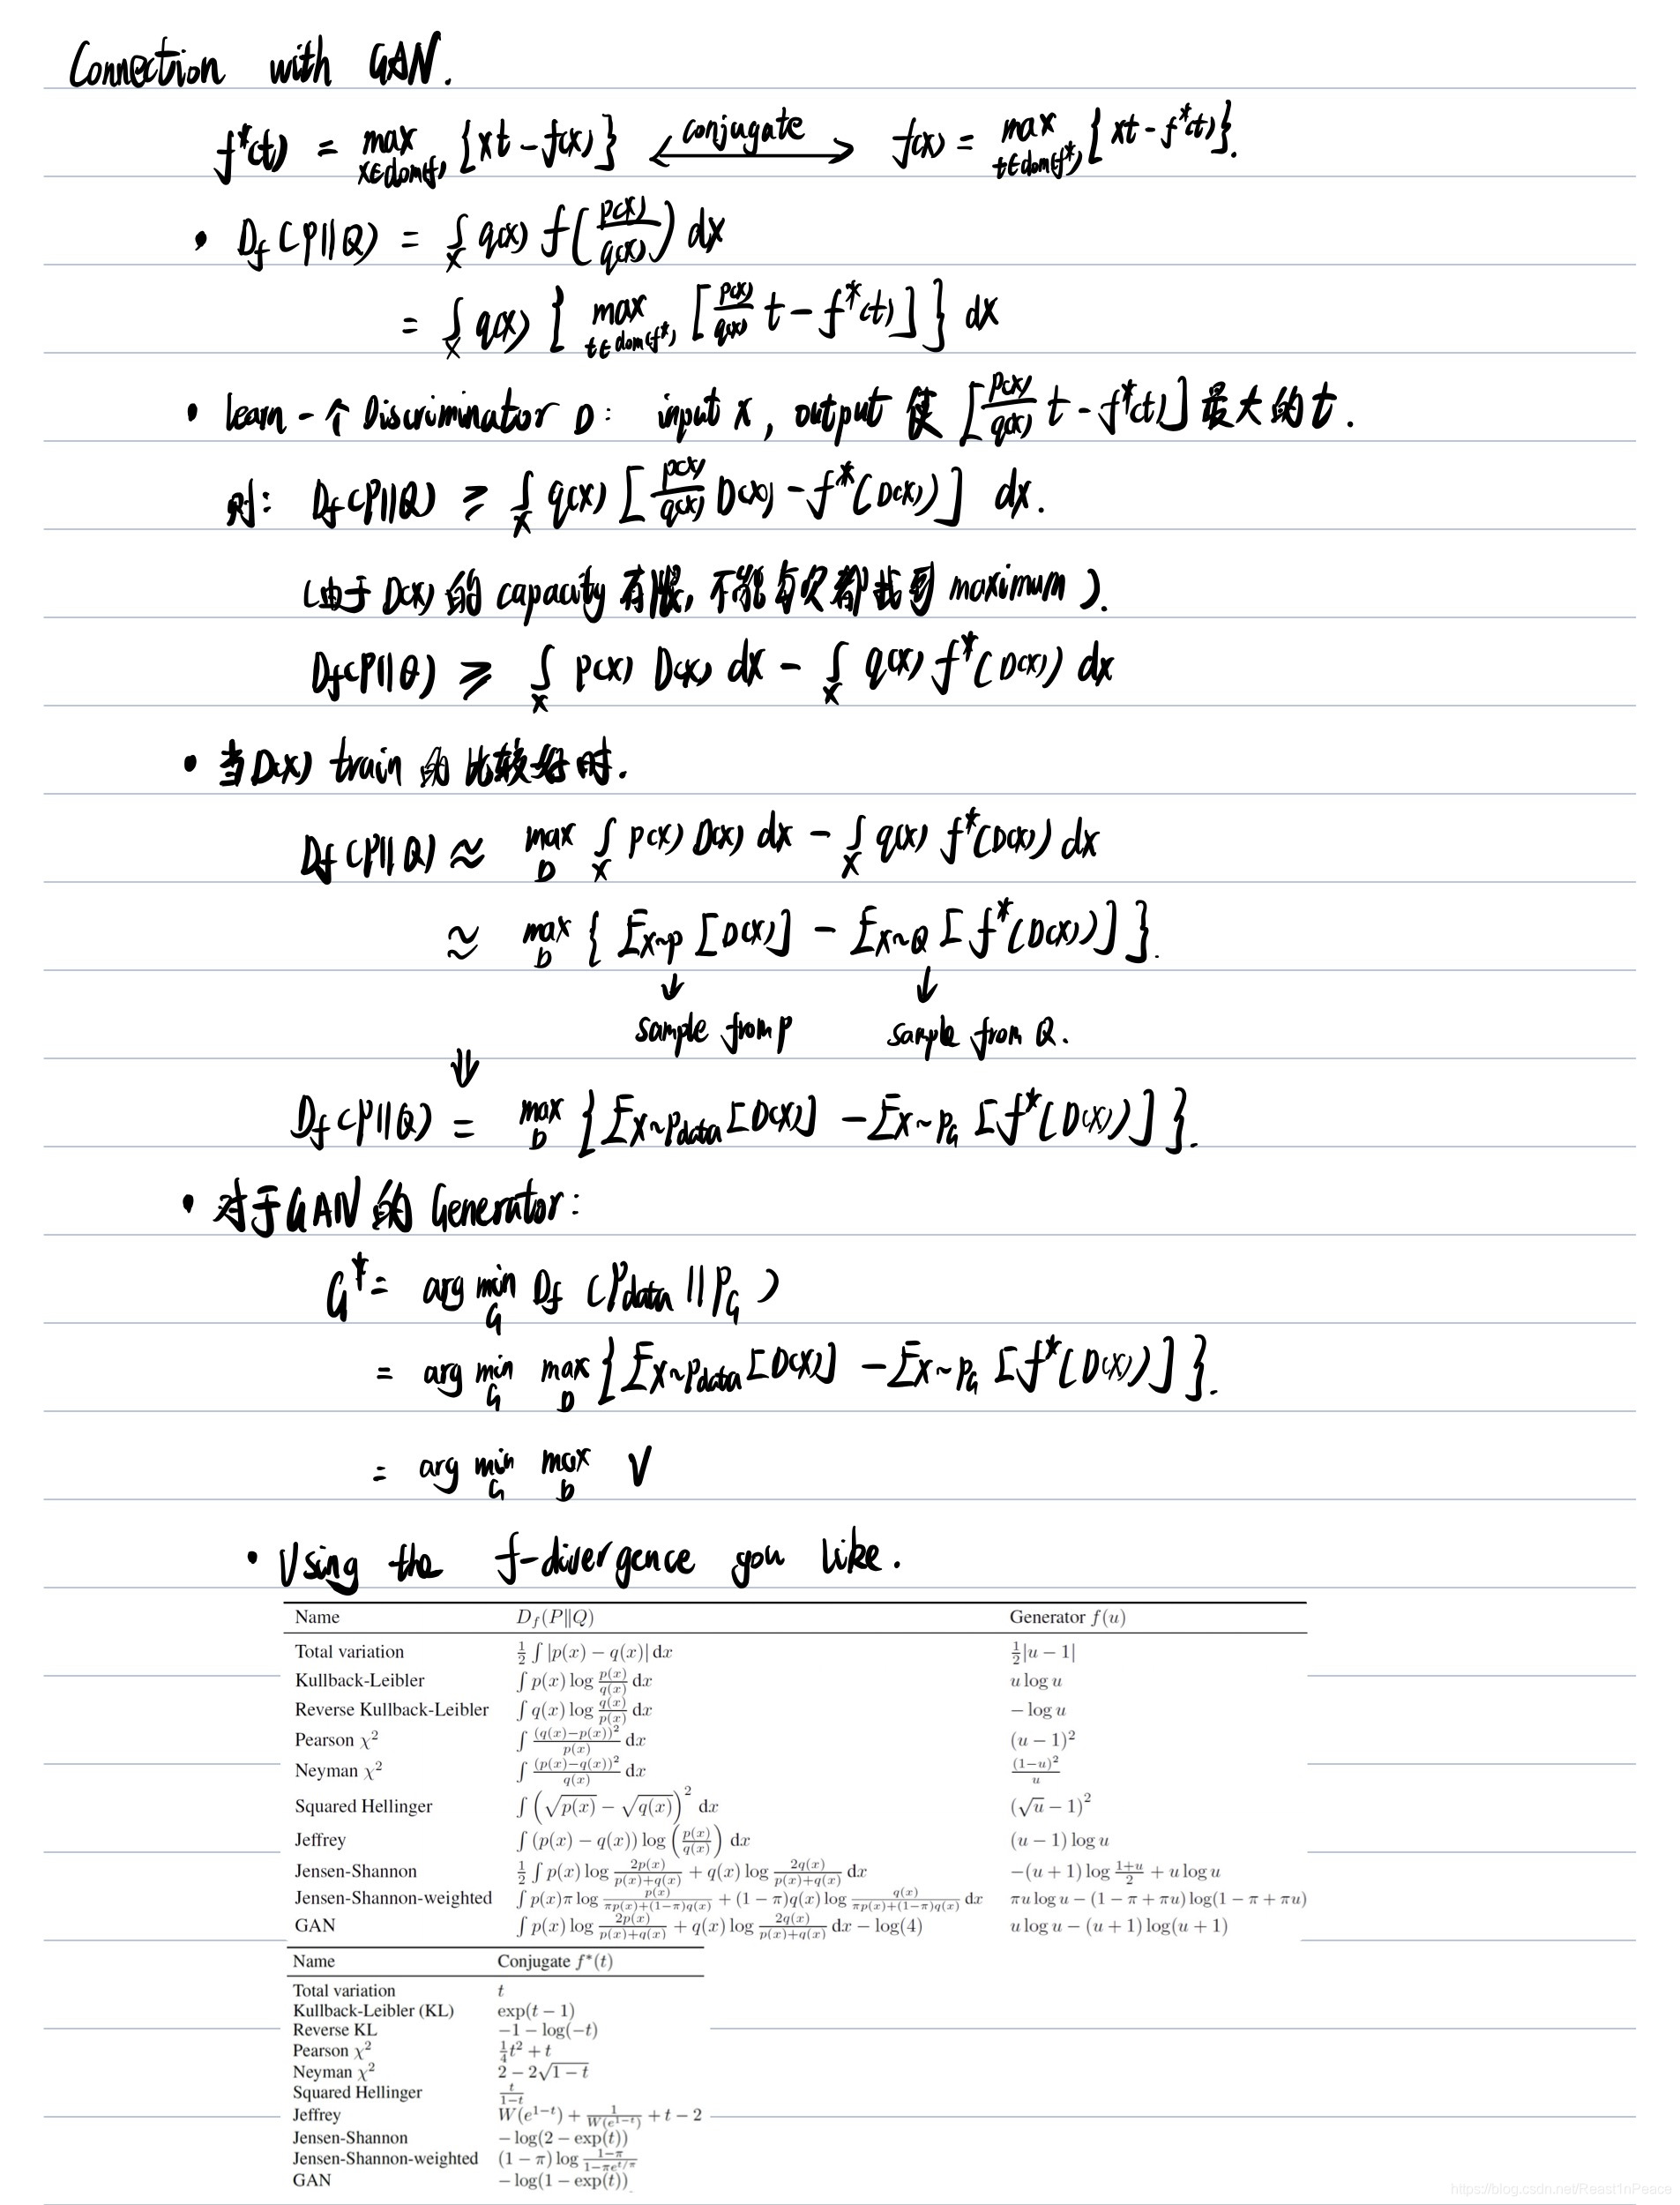 Connection with GAN.
f*(t) = max_{x∈dom(f)} {xt - f(x)} ⟷ conjugate f(x) = max_{t∈dom(f*)} {xt - f*(t)}.
• D_f(P||Q) = ∫_x q(x) f(p(x)/q(x)) dx
= ∫_x q(x) { max_{t∈dom(f*)} [p(x)/q(x) t - f*(t)] } dx
• learn 一个 Discriminator D: input x, output 使 [p(x)/q(x) t - f*(t)] 最大的 t.
则: D_f(P||Q) ≥ ∫_x q(x) [p(x)/q(x) D(x) - f*(D(x))] dx.
(由于 D(x) 的 capacity 有限, 不能每次都找到 maximum).
D_f(P||Q) ≥ ∫_x p(x) D(x) dx - ∫_x q(x) f*(D(x)) dx
• 当 D(x) train 的比较好时.
D_f(P||Q) ≈ max_D ∫_x p(x) D(x) dx - ∫_x q(x) f*(D(x)) dx
≈ max_D { E_{x~P} [D(x)] - E_{x~Q} [f*(D(x))] }.
↓ ↓
sample from P sample from Q.
⇓
D_f(P||Q) = max_D { E_{x~Pdata} [D(x)] - E_{x~P_G} [f*(D(x))] }.
• 对于GAN的 Generator:
G* = arg min_G D_f (P_data || P_G)
= arg min_G max_D { E_{x~Pdata} [D(x)] - E_{x~P_G} [f*(D(x))] }.
= arg min_G max_D V
• Using the f-divergence you like.
Name D_f(P‖Q) Generator f(u)
Total variation 1/2 ∫ |p(x) − q(x)| dx 1/2|u − 1|
Kullback-Leibler ∫ p(x) log p(x)/q(x) dx u log u
Reverse Kullback-Leibler ∫ q(x) log q(x)/p(x) dx − log u
Pearson χ² ∫ (q(x)−p(x))²/p(x) dx (u − 1)²
Neyman χ² ∫ (p(x)−q(x))²/q(x) dx (1−u)²/u
Squared Hellinger ∫ (√p(x) − √q(x))² dx (√u − 1)²
Jeffrey ∫ (p(x) − q(x)) log (p(x)/q(x)) dx (u − 1) log u
Jensen-Shannon 1/2 ∫ p(x) log 2p(x)/(p(x)+q(x)) + q(x) log 2q(x)/(p(x)+q(x)) dx −(u + 1) log (1+u)/2 + u log u
Jensen-Shannon-weighted ∫ p(x)π log p(x)/(πp(x)+(1−π)q(x)) + (1 − π)q(x) log q(x)/(πp(x)+(1−π)q(x)) dx πu log u − (1 − π + πu) log(1 − π + πu)
GAN ∫ p(x) log 2p(x)/(p(x)+q(x)) + q(x) log 2q(x)/(p(x)+q(x)) dx − log(4) u log u − (u + 1) log(u + 1)
Name Conjugate f*(t)
Total variation t
Kullback-Leibler (KL) exp(t − 1)
Reverse KL −1 − log(−t)
Pearson χ² 1/4 t² + t
Neyman χ² 2 − 2√(1 − t)
Squared Hellinger t/(1−t)
Jeffrey W(e^{1−t}) + 1/W(e^{1−t}) + t − 2
Jensen-Shannon − log(2 − exp(t))
Jensen-Shannon-weighted (1 − π) log (1−π)/(1−πe^{t/π})
GAN − log(1 − exp(t))
https://blog.csdn.net/Reast1nPeace